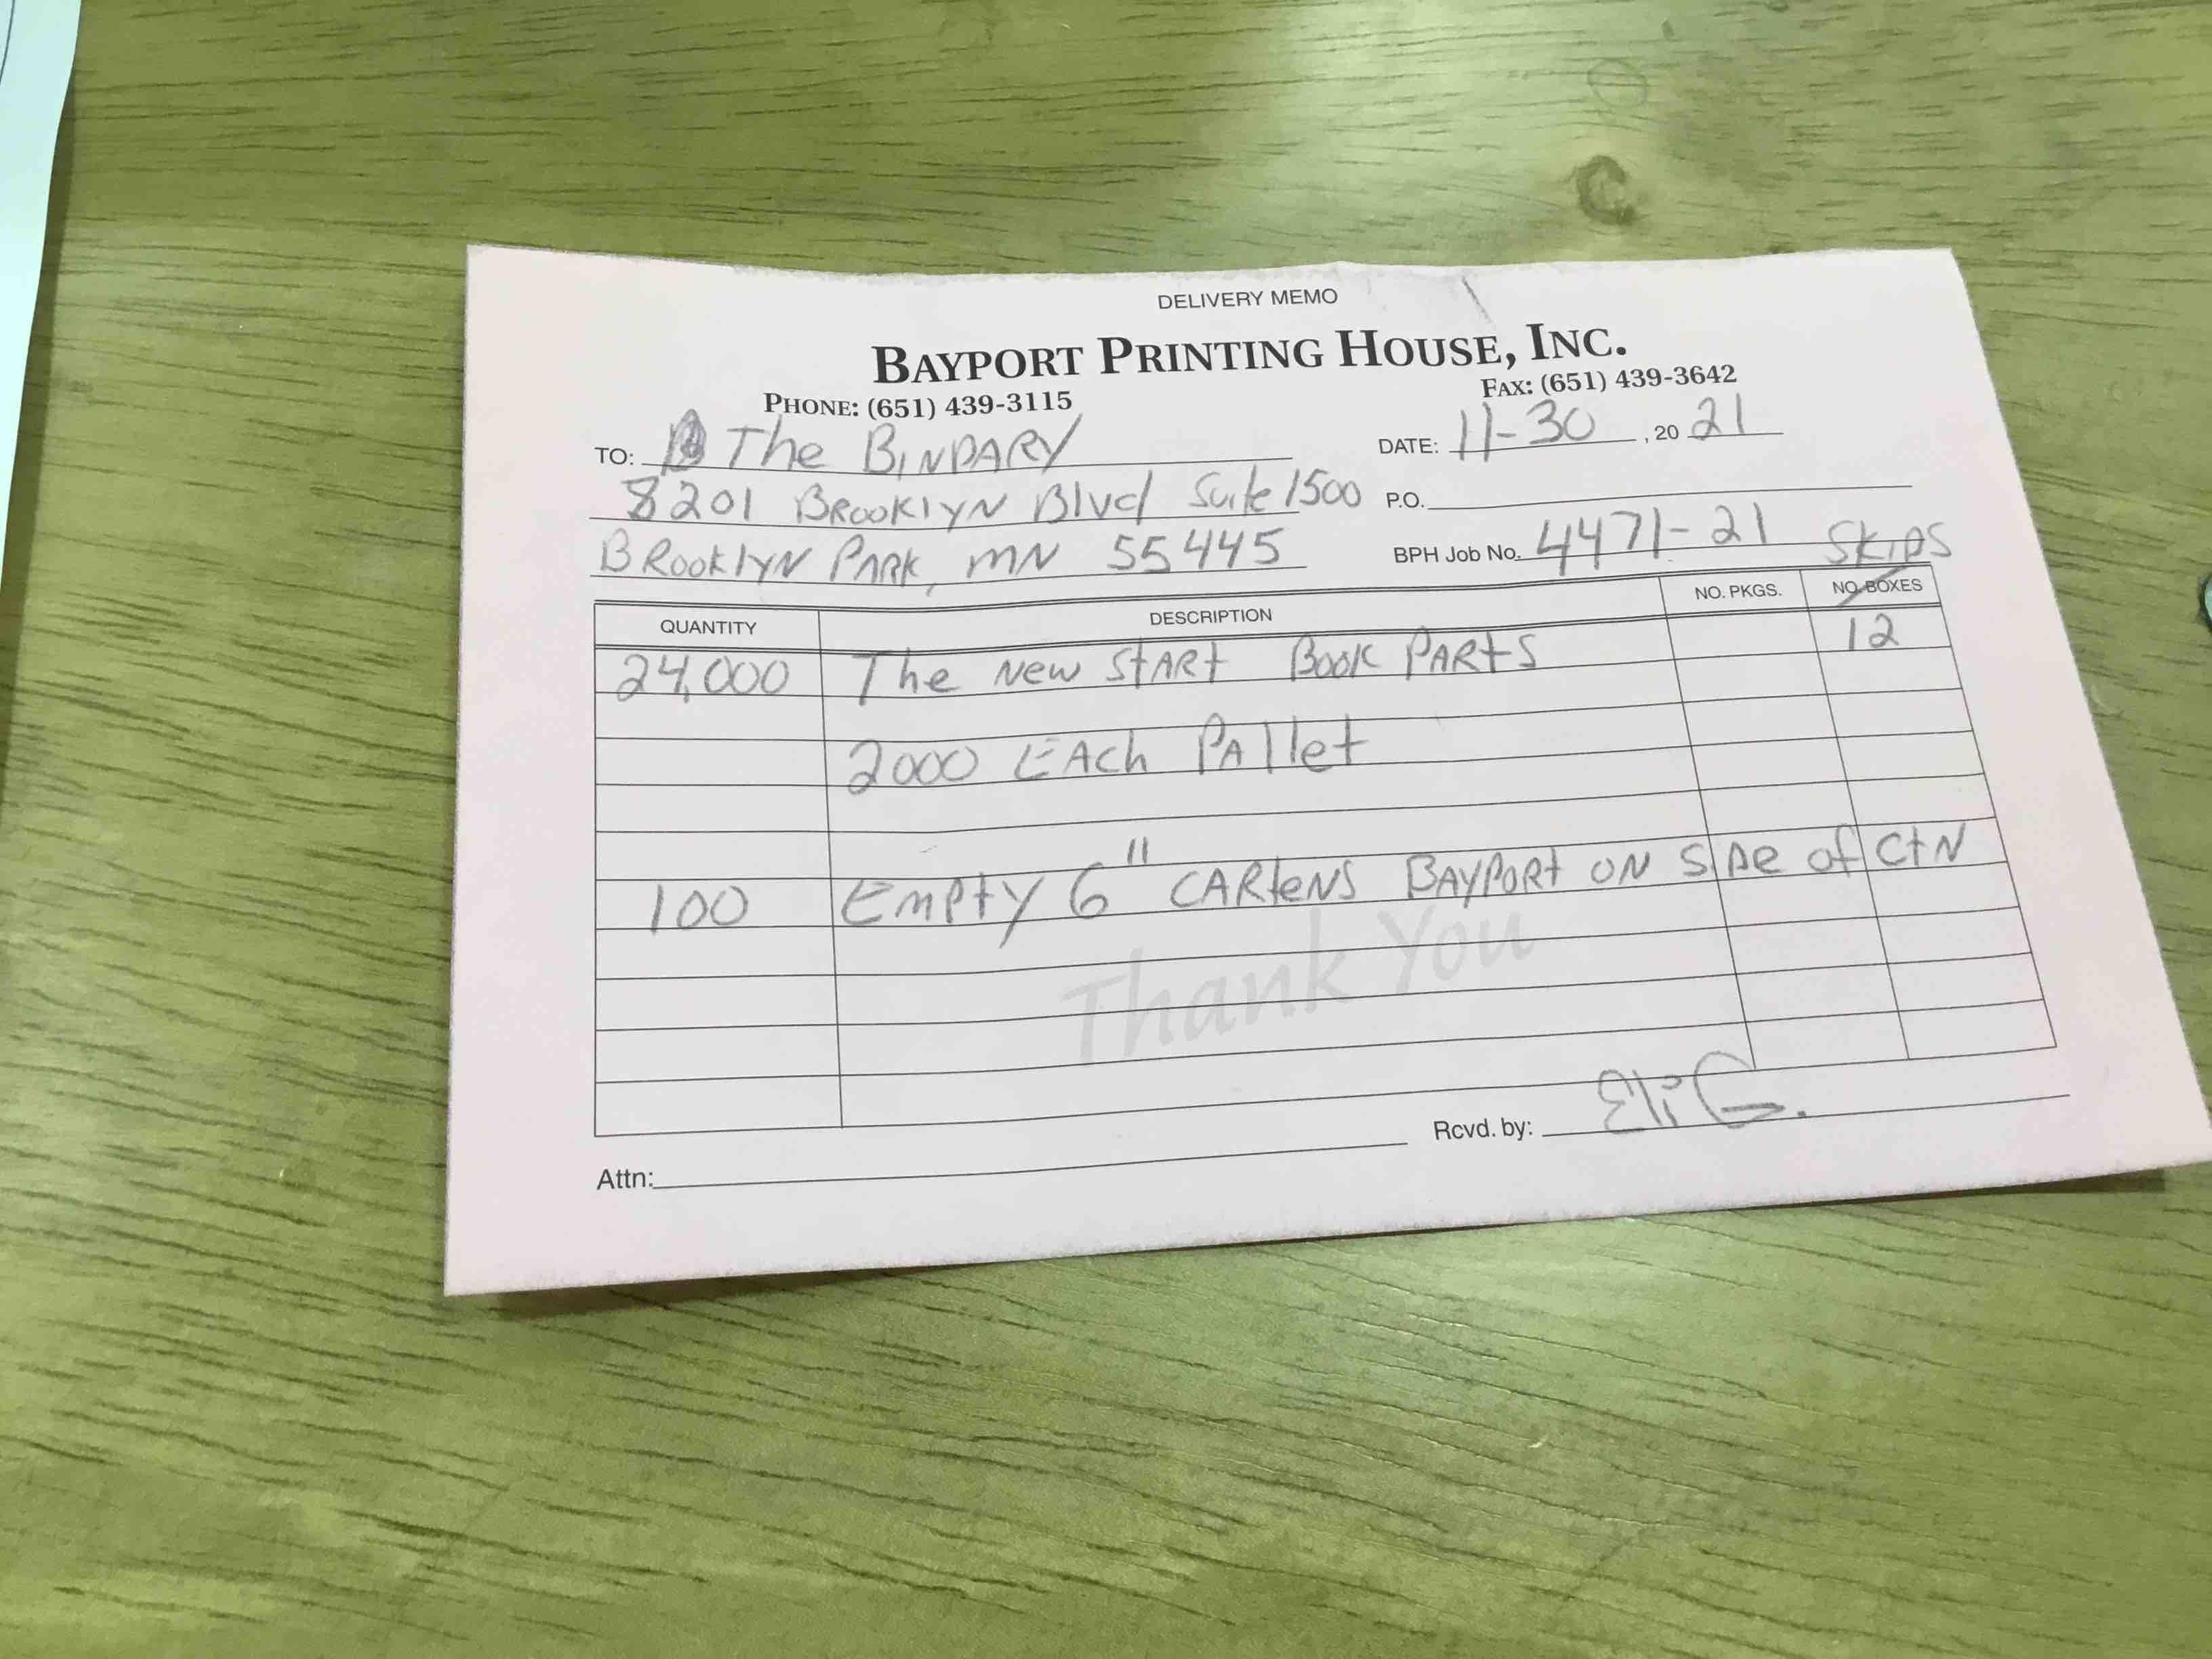 DELIVERY MEMO
BAYPORT PRINTING HOUSE, INC.
PHONE: (651) 439-3115 FAX: (651) 439-3642
TO: The BINDARY DATE: 11-30, 20 21
8201 BROOKLYN Blvd Suite 1500 P.O.
BROOKlYN PARK, MN 55445 BPH Job No. 4471-21 SKIDS
QUANTITY DESCRIPTION NO. PKGS. NO. BOXES
24,000 The New START BOOK PARTS 12
2000 EACh PAllet
100 EMPTY 6" CARteNS BAYPORT ON SIDE of CtN
Thank You
Rcvd. by: Eli G.
Attn: